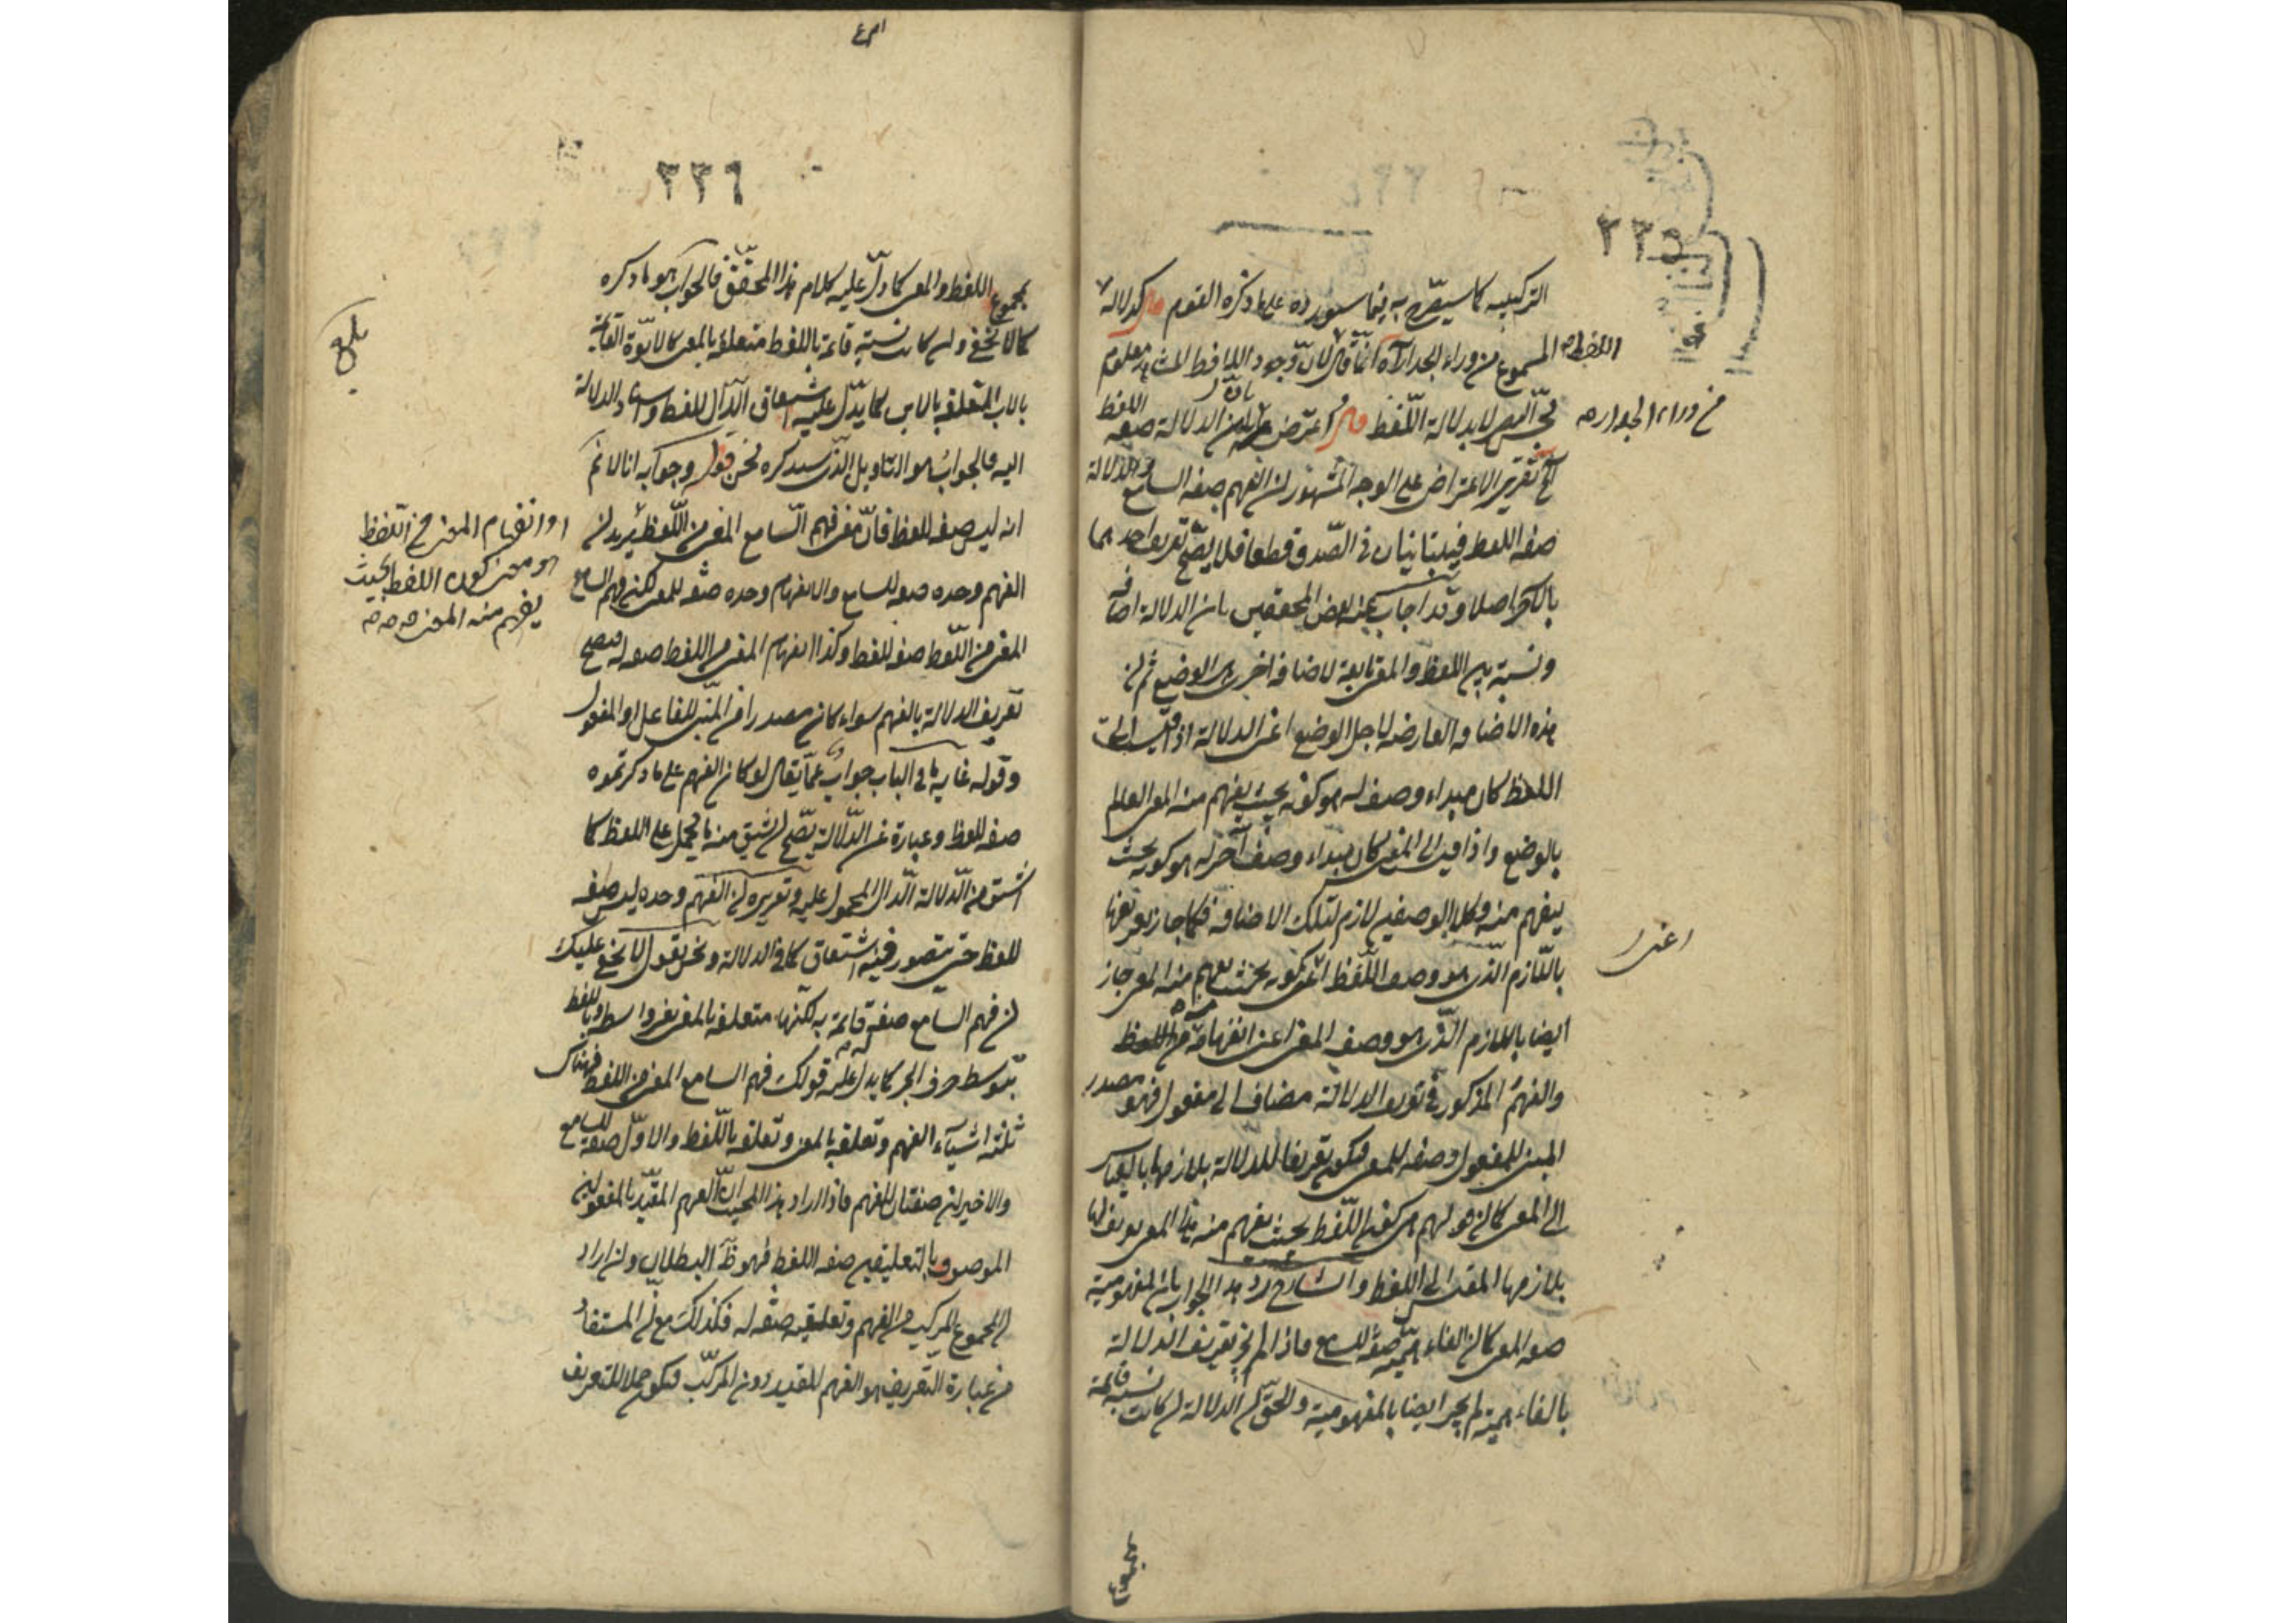 ٢٣٥
التركيبيه كما سيصرّح به فيما سيورده على ما ذكره القوم قال كدلالة
اللفظ المسموع من وراء الجدار آه انما قال لان وجود اللافظ المشاهد معلوم
من وراء الجدار صح
بحس البصر لا بدلالة اللّفظ قال اعترض بان الدلالة صفة اللفظ
آه تقرير الاعتراض على الوجه المشهور ان الفهم صفه السامع والدلالة
صفه اللفظ فيتباينان في الصّدق قطعا فلا يصحّ تعريف احدهما
بالاخر اصلا وقد اجاب عنه بعض المحققين بان الدلالة اضافه
ونسبة بين اللفظ والمعنى تابعة لاضافه اخرى هي الوضع ثم ان
هذه الاضافه العارضه لاجل الوضع اعنى الدلالة اذا قيست الى
اللفظ كان مبداء وصف له هو كونه بحيث يفهم منه المعنى العالم
بالوضع واذا قيس الى المعنى كان مبداء وصف آخر له هو كونه بحيث
ينفهم منه وكلا الوصفين لازم لتلك الاضافه فكما جاز تعريفها
اعنى
باللّازم الذى هو وصف اللّفظ اعنى كونه بحيث يفهم منه المعنى جاز
ايضا باللازم الّذى هو وصف المعنى اعنى انفهامه من اللفظ
والفهم المذكور في تعريف الدلالة مضاف الى مفعول فهو مصدر
المبنى للمفعول وصفه للمعنى فيكون تعريفا للدلالة بلازمها بالقياس
الى المعنى كما ان قولهم هي كون اللّفظ بحيث يفهم منه المعنى تعريف لها
بلازمها المقيس الى اللفظ والشارح رد هذا الجواب بان المفهومية
صفه المعنى كما ان الفاهمية صفه للسامع فاذا لم يجز تعريف الدلالة
بالفاهمية لم يجز ايضا بالمفهومية والحق ان الدلالة ان كانت نسبة قائمة
بمجموع
٢٣٦
بمجموع اللفظ والمعنى كما دلّ عليه كلام هذا المحقّق فالجواب هو ما ذكره
كما لا يخفى وان كانت نسبة قائمة باللفظ متعلقة بالمعنى كالابوّة القائمة
بالاب المتعلقة بالابن كما يدّل عليه اشتقاق الدّال للفظ واسناد الدلالة
اليه فالجواب هو التاويل الذّى سيذكره نحن قوله وجوابه انا لا نم
انه ليس صفه للفظ فانّ معنى فهم السّامع المعنى من اللّفظ يريد ان
او انفهام المعنى من اللّفظ
هو معنى كون اللفظ بحيث
يفهم منه المعنى صح صح
الفهم وحده صفه للسامع والانفهام وحده صفه للمعنى لكن فهم السامع
المعنى من اللّفظ صفه للفظ وكذا انفهام المعنى من اللفظ صفه له فيصح
تعريف الدلالة بالفهم سواء كان مصدرا من المبنى للفاعل او المفعول
وقوله غاية ما في الباب جواب عمّا يقال لو كان الفهم على ما ذكرتموه
صفه للفظ وعبارة عن الدّلالة يصّح ان يشتق منه ما يحمل على اللفظ كما
اشتق من الدّلالة الدّال المحمول عليه وتقريره ان الفهم وحده ليس صفه
للفظ حتى يتصور فيه اشتقاق كما في الدلالة ونحن نقول لا يخفى عليك
ان فهم السامع صفه قائمة به لكنها متعلقه بالمعنى بغير واسطه وباللفظ
بتوسط حرف الجر كما يدل عليه قولك فهم السامع المعنى من اللفظ فهناك
ثلثة اشيآء الفهم وتعلقه بالمعنى وتعلقه باللّفظ والاوّل صفه للسامع
والاخيران صفتان للفهم فاذا اراد هذا المجيب ان الفهم المقيّد بالمفعولين
الموصوف بالتعليقين صفه اللفظ فهو ظ البطلان وان اراد
ان المجموع المركب من الفهم وتعلقيه صفه له فكذلك مع ان المستفاد
من عبارة التعريف هو الفهم المقيد دون المركّب فيكون حملا للتعريف